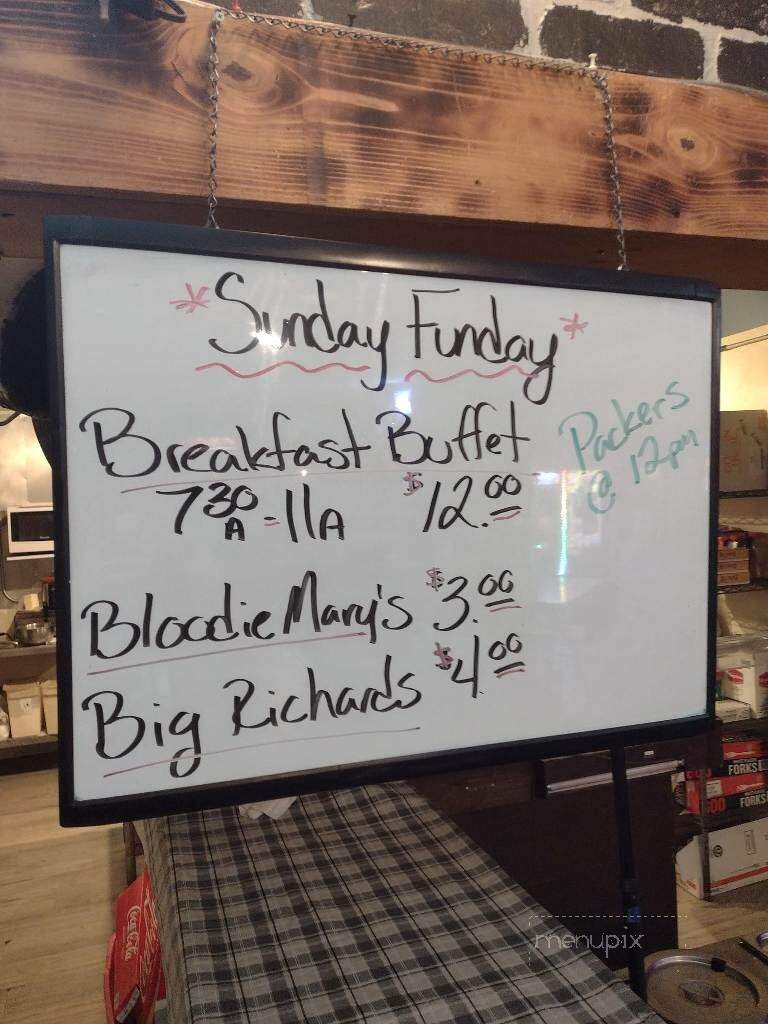 *Sunday Funday*
Breakfast Buffet
7 30 A - 11A $12.00
Packers
@ 12pm
Bloodie Mary's $3.00
Big Richards $4.00
FORKS
500 FORKS
Coca-Cola
menupix